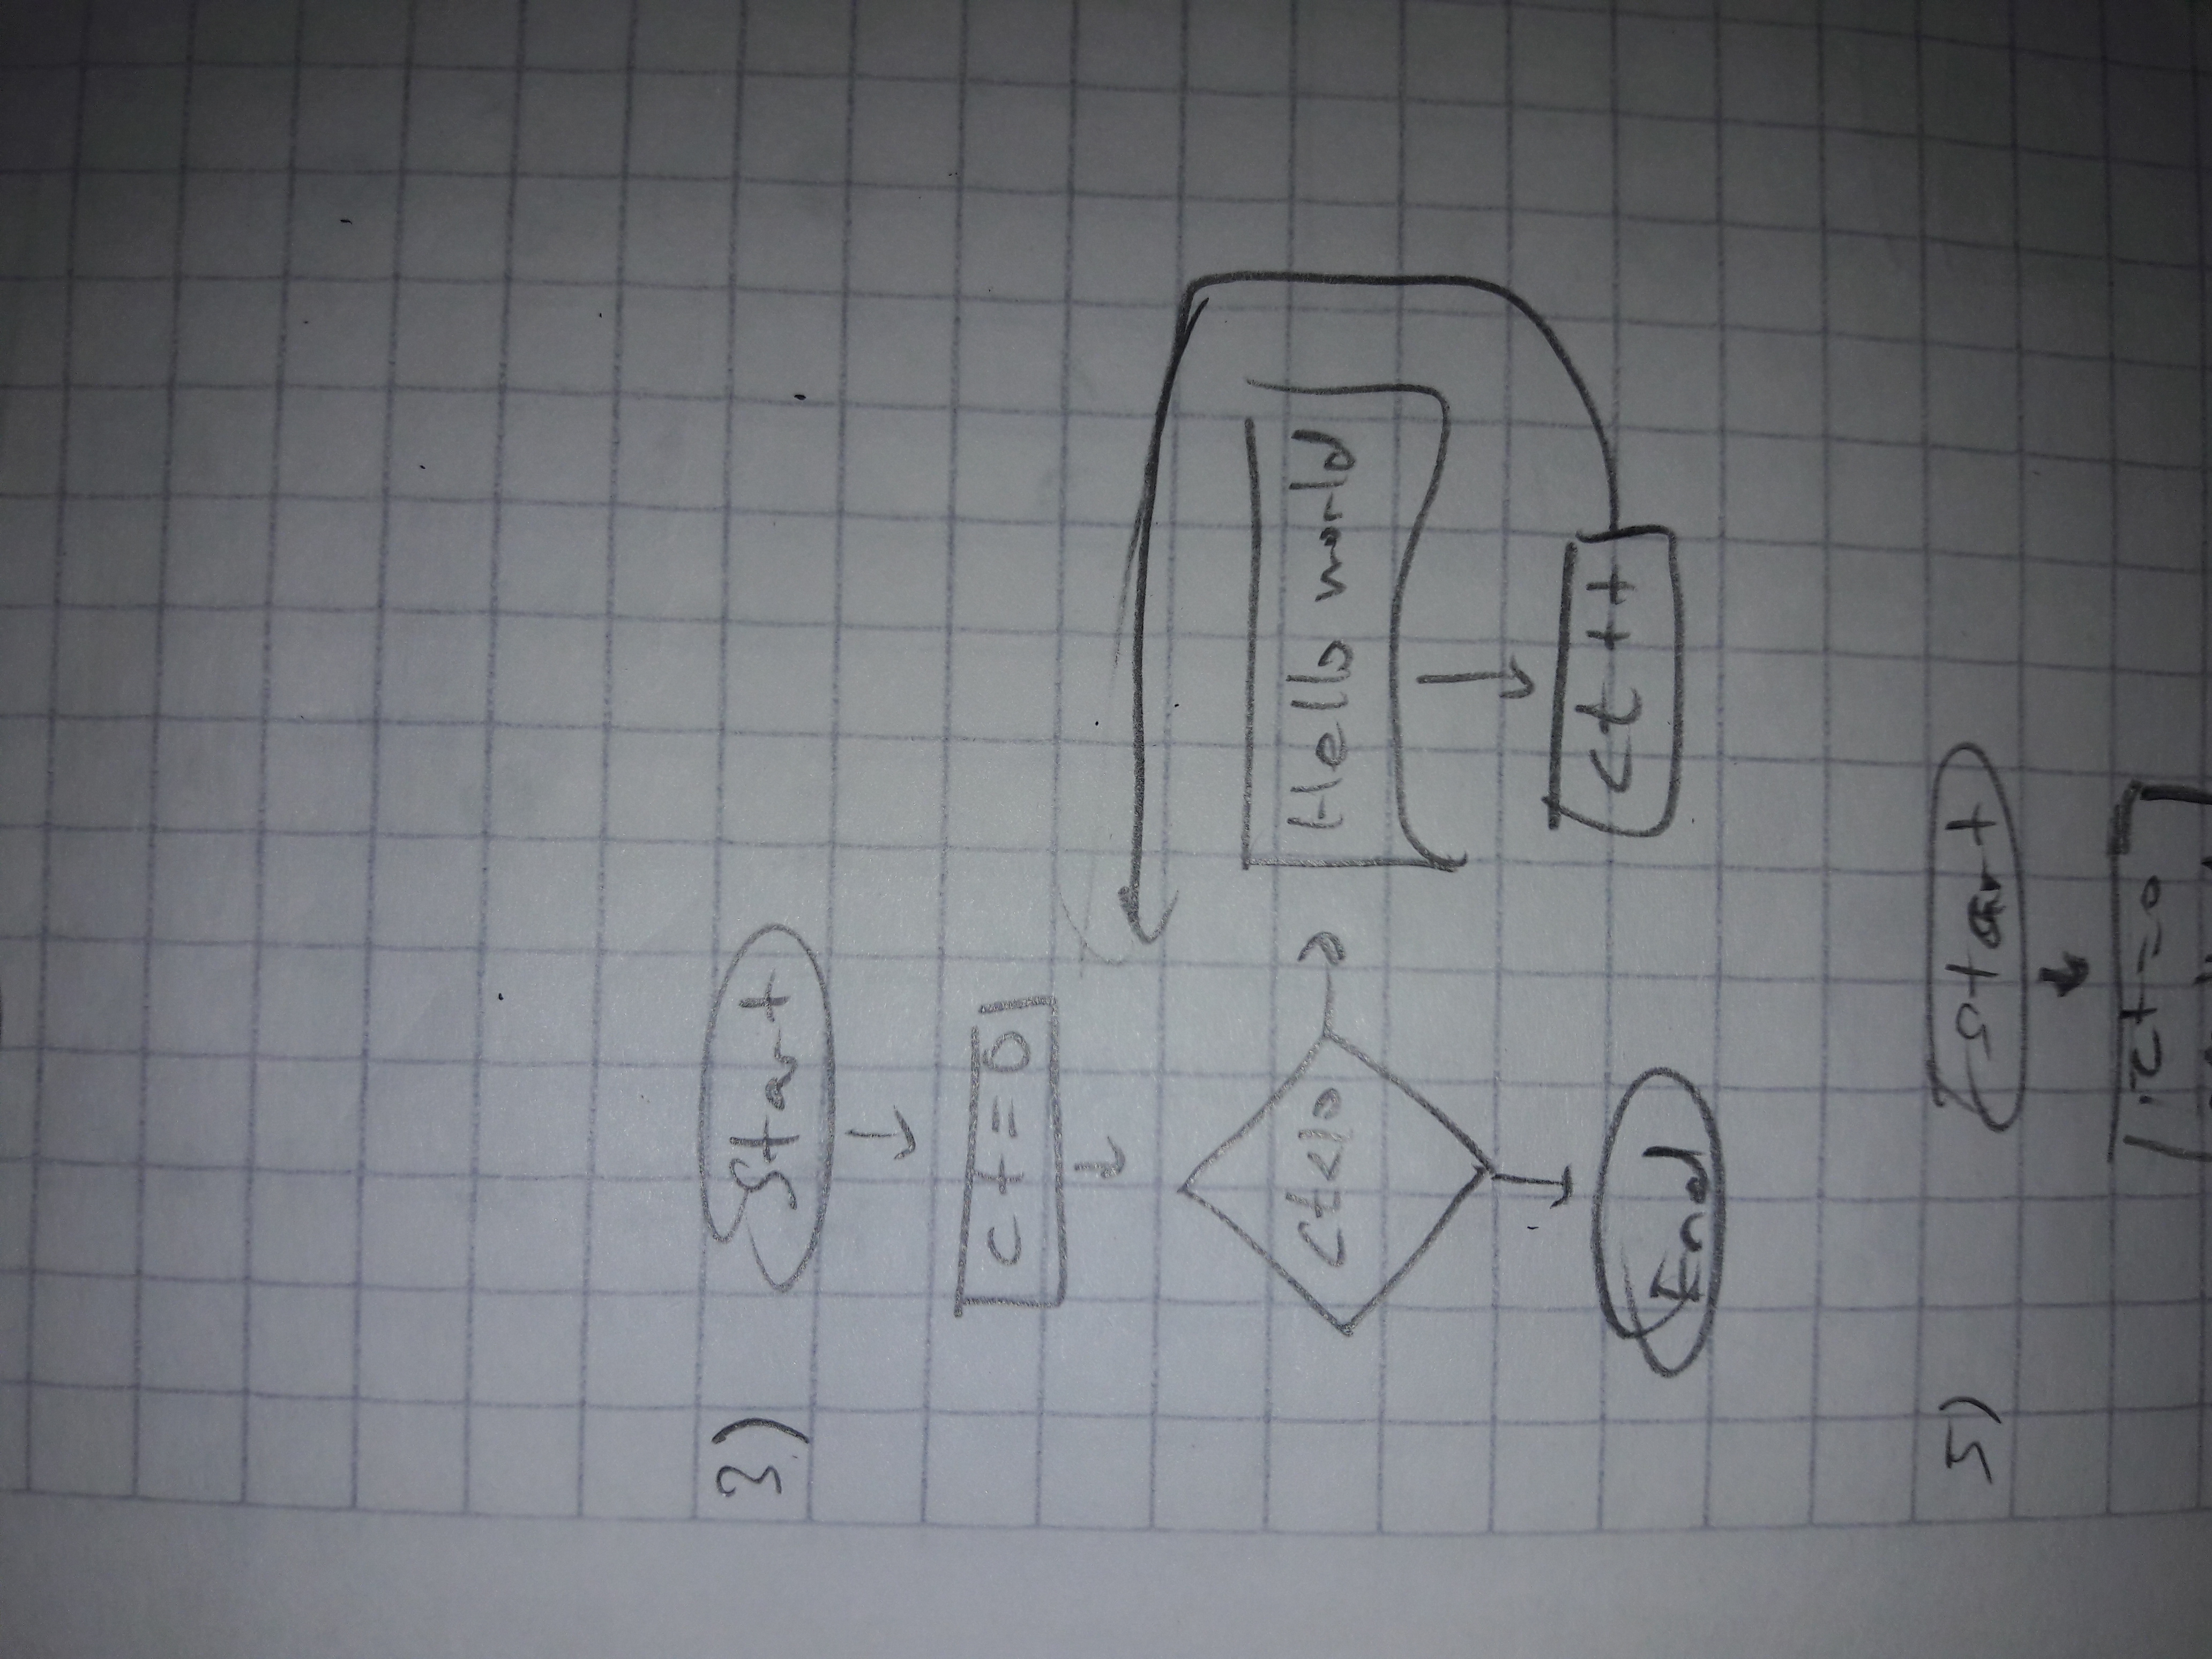 3) Start
ct=0
ct<10
Hello world
ct++
End
5) Start
ct=0